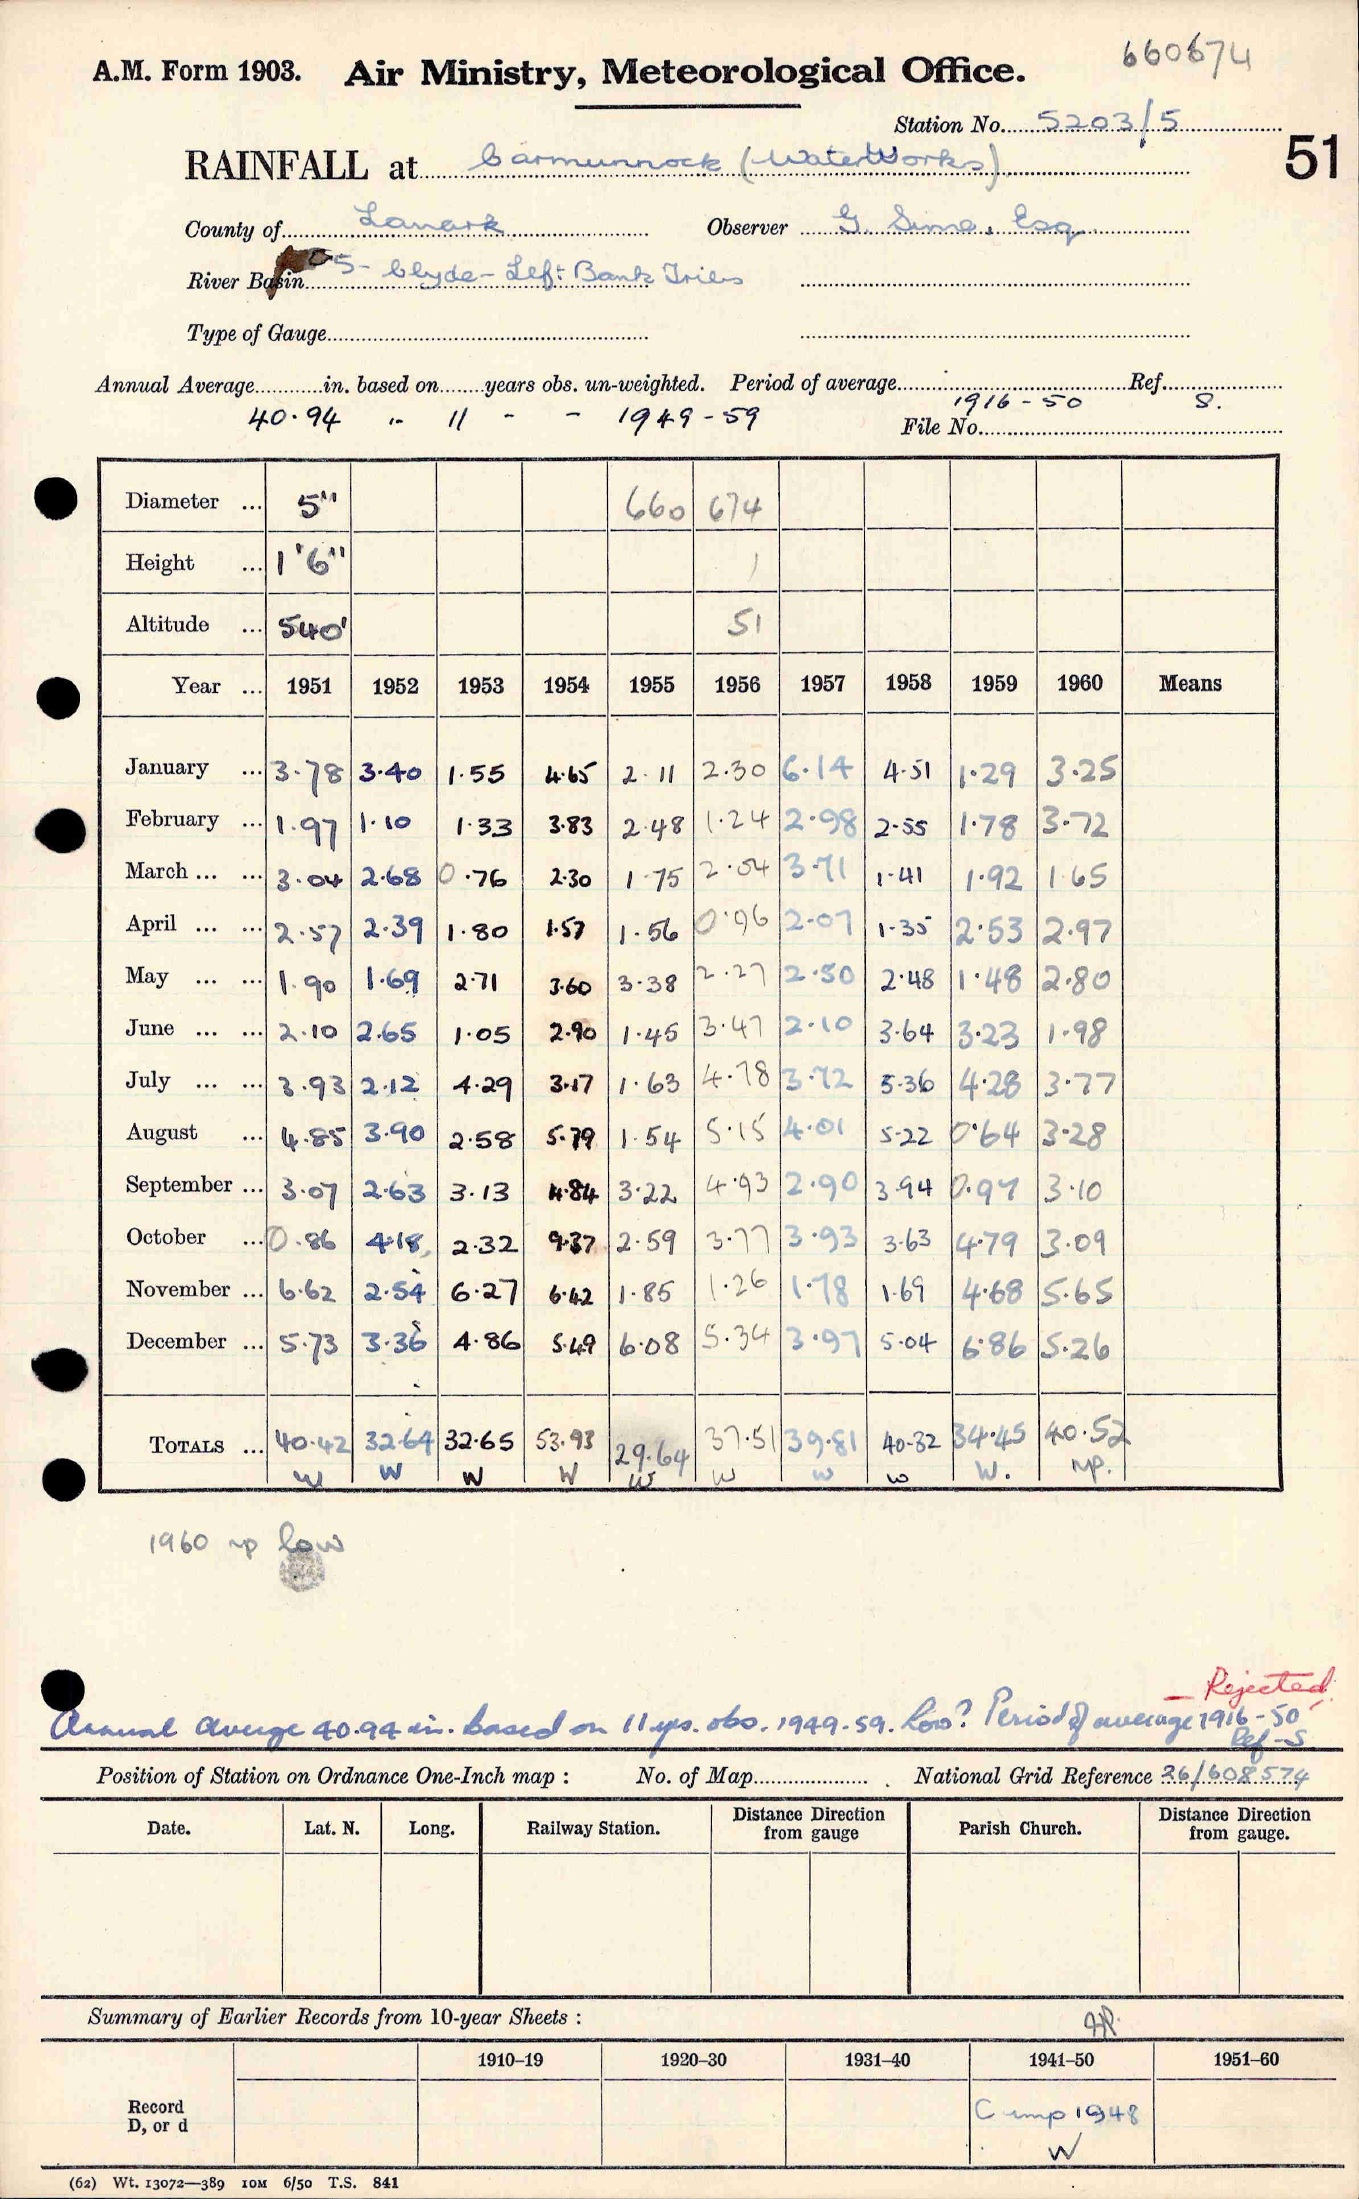 660674
A.M. Form 1903. Air Ministry, Meteorological Office.
Station No. 5203/5
51
RAINFALL at Carmunnock (WaterWorks)
County of Lanark Observer G. Sime, Esq.
River Basin 5 - Clyde - Left Bank Tribs
Type of Gauge
Annual Average in. based on years obs. un-weighted. Period of average 1916-50 Ref. S.
40.94 " 11 - - 1949-59 File No.
Diameter ... 5" 660 674
Height ... 1'6" 1
Altitude ... 540' 51
Year ... 1951 1952 1953 1954 1955 1956 1957 1958 1959 1960 Means
January ... 3.78 3.40 1.55 4.65 2.11 2.30 6.14 4.51 1.29 3.25
February ... 1.97 1.10 1.33 3.83 2.48 1.24 2.98 2.55 1.78 3.72
March ... ... 3.04 2.68 0.76 2.30 1.75 2.04 3.71 1.41 1.92 1.65
April ... ... 2.57 2.39 1.80 1.57 1.56 0.96 2.07 1.35 2.53 2.97
May ... ... 1.90 1.69 2.71 3.60 3.38 2.27 2.50 2.48 1.48 2.80
June ... ... 2.10 2.65 1.05 2.90 1.45 3.47 2.10 3.64 3.23 1.98
July ... ... 3.93 2.12 4.29 3.17 1.63 4.78 3.72 5.36 4.28 3.77
August ... 4.85 3.90 2.58 5.79 1.54 5.15 4.01 5.22 0.64 3.28
September ... 3.07 2.63 3.13 4.84 3.22 4.93 2.90 3.94 0.97 3.10
October ... 0.86 4.18 2.32 9.37 2.59 3.77 3.93 3.63 4.79 3.09
November ... 6.62 2.54 6.27 6.42 1.85 1.26 1.78 1.69 4.68 5.65
December ... 5.73 3.36 4.86 5.49 6.08 5.34 3.97 5.04 6.86 5.26
TOTALS ... 40.42 32.64 32.65 53.93 29.64 37.51 39.81 40.82 34.45 40.52
W W W W W W W W W. np.
1960 np low
— Rejected
Annual average 40.94 in. based on 11 yrs. obs. 1949-59. Low? Period of average 1916-50
Ref-S
Position of Station on Ordnance One-Inch map : No. of Map National Grid Reference 26/608574
Date. Lat. N. Long. Railway Station. Distance Direction from gauge Parish Church. Distance Direction from gauge.
Summary of Earlier Records from 10-year Sheets :
1910–19 1920–30 1931–40 1941–50 1951–60
Record
D, or d
1948
W
(62) Wt. 13072—389 10M 6/50 T.S. 841